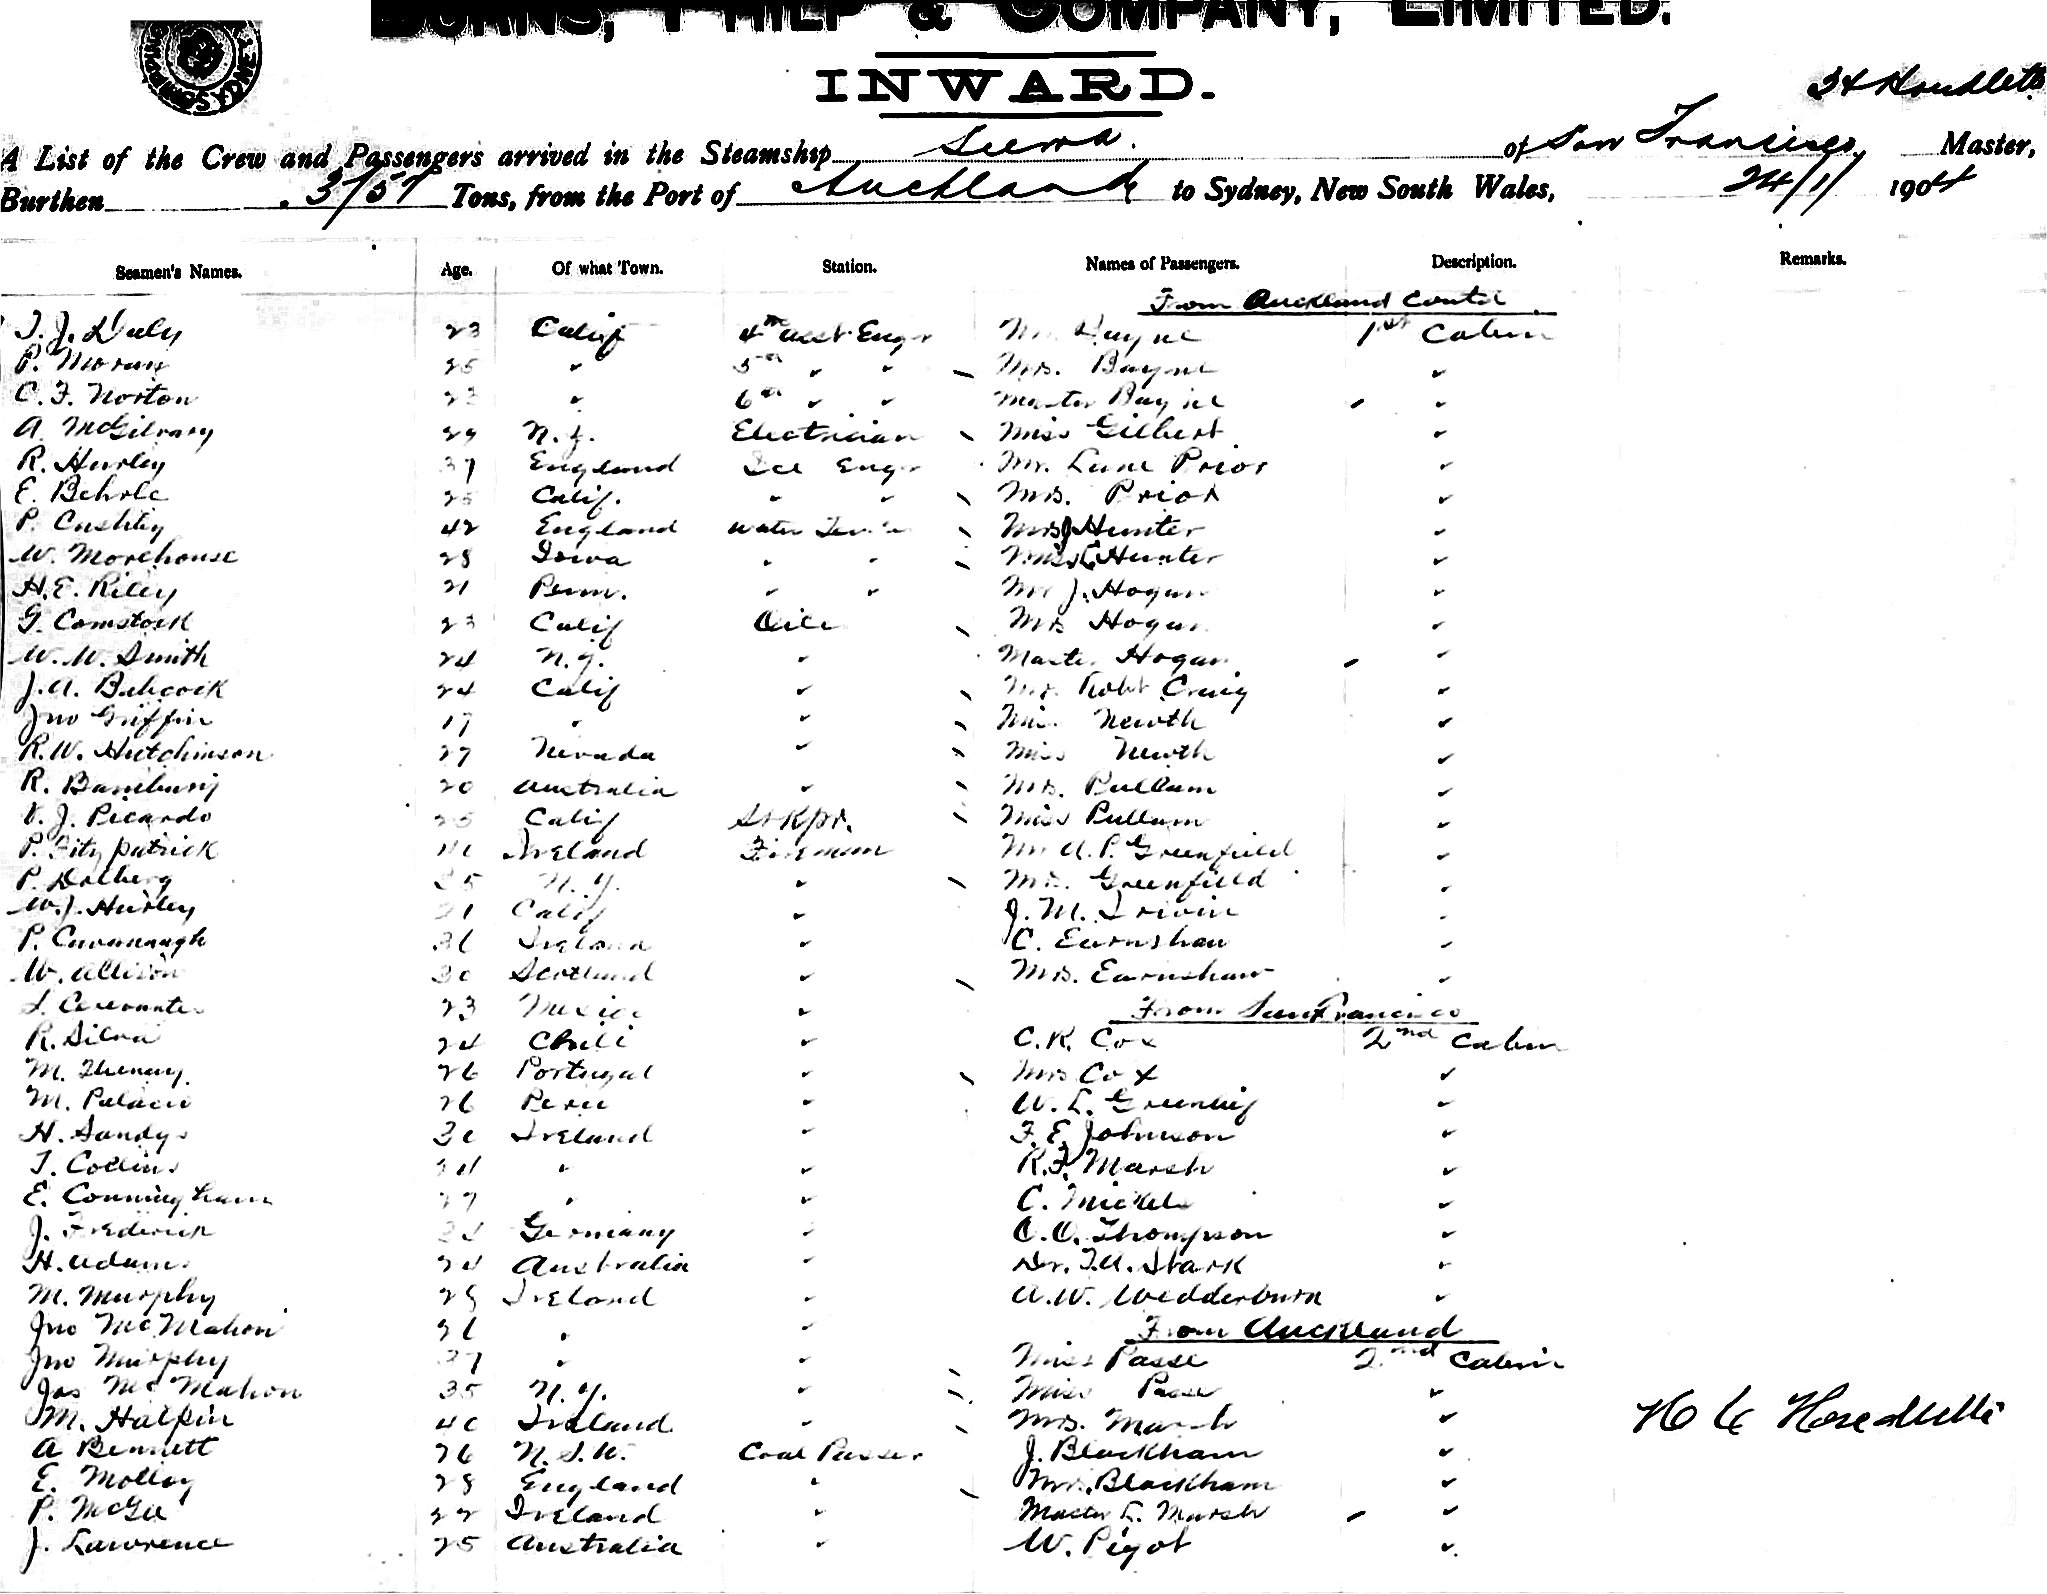 BURNS, PHILP & COMPANY, LIMITED.
INWARD.
A List of the Crew and Passengers arrived in the Steamship Sierra. of San Francisco, Master,
Burthen 3/57 Tons, from the Port of Auckland to Sydney, New South Wales, 24/1/ 1904
Seamen's Names. Age. Of what Town. Station. Names of Passengers. Description. Remarks.
From Auckland Contd
T. J. Daly 23 Calif 4th asst Engr Mr Bayne 1st Cabin
P. Moran 25 " 5th " " Mrs. Bayne "
C. F. Norton 23 " 6th " " Master Bayne "
A. McGilvary 29 N.J. Electrician Miss Gilbert "
R. Hurley 37 England Ice Engr Mr. Lane Prior "
E. Behrle 25 Calif. " " Mrs. Prior "
P. Cushley 42 England Water Tender Mrs J Hunter "
W. Morehouse 28 Iowa " " Miss Hunter "
H. E. Riley 21 Penn. " " Mr J. Hogan "
G. Comstock 23 Calif Oiler Mrs Hogan "
W. W. Smith 24 N.J. " Master Hogan "
J. A. Babcock 24 Calif " Mr. Robt Craig "
Jno Griffin 17 " " Newth "
R. W. Hutchinson 27 Nevada " Miss Newth "
R. 20 Australia " Mrs. Pullum "
V. J. Picardo 25 Calif St Kpr. Miss Pullum "
P. Fitzpatrick Ireland Fireman Mr A. P. Greenfield "
P. Dolberg 25 N.Y. " Mrs. Greenfield "
W. J. Hurley 21 Calif " J. M. Irwin "
P. Cavanaugh Ireland " C. Earnshaw "
W. Allison 30 Scotland " Mrs. Earnshaw "
From San Francisco
Cervantes 23 Mexico "
R. Silva 24 Chili " C. R. Cox 2nd Cabin
M. 26 Portugal " Mrs Cox "
M. Palacio 26 Peru " W. L. "
H. Sandys 30 Ireland " F. E. Johnson "
T. Collins " " R. F. Marsh "
E. Conningham 27 " " C. Mickels "
J. Frederick Germany " C. O. Thompson "
H. Adams 24 Australia " Dr. T. A. Stark "
M. Murphy 28 Ireland " A. W. Wedderburn "
From Auckland
Jno McMahon " "
Jno Murphy 27 " " Miss Passe 2nd Cabin
Jas McMahon 35 N.Y. " Miss Passe "
M. Halpin 40 Ireland " Mrs. Marsh "
A Bennett 26 N.S.W. Coal Passer J. Blackham "
E. Molloy 28 England " Mrs. Blackham "
P. McGee 22 Ireland " Master L. Marsh "
J. Lawrence 25 Australia " W. Pigot "